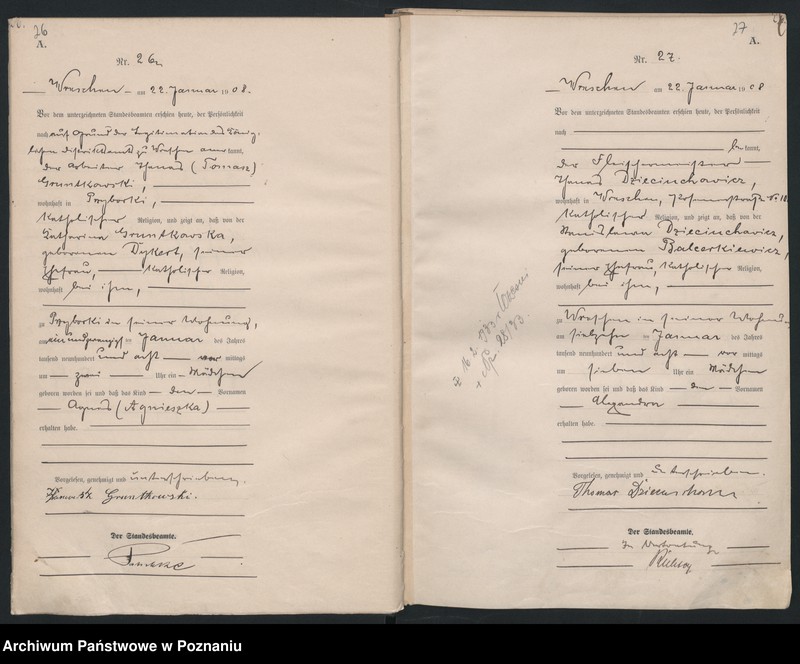 26
A.
Nr. 26
Wreschen am 22. Januar 1908.
Vor dem unterzeichneten Standesbeamten erschien heute, der Persönlichkeit
nach auf Grund der Legitimation des König-
lichen Distriktsamts zu Wreschen anerkannt,
der Arbeiter Thomas (Tomasz)
Gruntkowski,
wohnhaft in Przyborki,
katholischer Religion, und zeigt an, daß von der
Katharina Gruntkowska,
geborenen Dykert, seiner
Ehefrau, katholischer Religion,
wohnhaft bei ihm,
zu Przyborki in seiner Wohnung,
am einundzwanzigsten Januar des Jahres
tausend neunhundert und acht vor mittags
um zwei Uhr ein Mädchen
geboren worden sei und daß das Kind den Vornamen
Agnes (Agnieszka)
erhalten habe.
Vorgelesen, genehmigt und unterschrieben.
Gruntkowski.
Der Standesbeamte.
27
A.
Nr. 27.
Wreschen am 22. Januar 1908
Vor dem unterzeichneten Standesbeamten erschien heute, der Persönlichkeit
nach
bekannt,
der Fleischermeister
Thomas Dzieciuchowicz,
wohnhaft in Wreschen, Posenerstraße No. 18
katholischer Religion, und zeigt an, daß von der
Stanislawa Dzieciuchowicz,
geborenen Balcerkiewicz,
seiner Ehefrau, katholischer Religion,
wohnhaft bei ihm,
zu Wreschen in seiner Wohnung
am siebzehn ten Januar des Jahres
tausend neunhundert und acht vor mittags
um sieben Uhr ein Mädchen
geboren worden sei und daß das Kind den Vornamen
Alexandra
erhalten habe.
Vorgelesen, genehmigt und unterschrieben.
Thomas
Der Standesbeamte.
In Vertretung
Archiwum Państwowe w Poznaniu